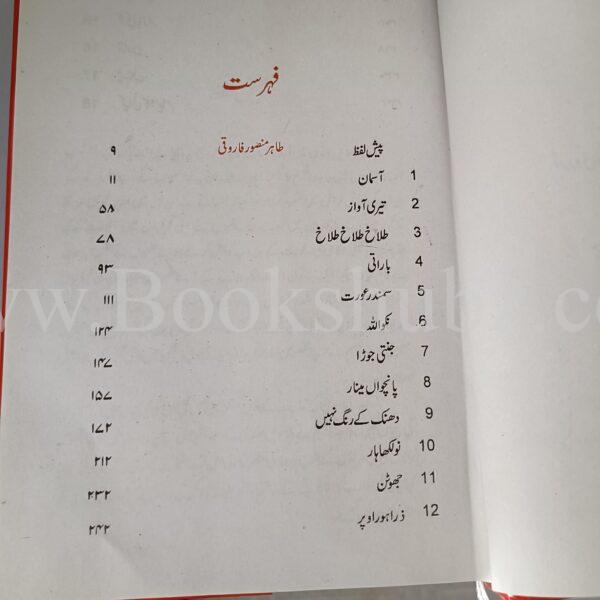 فہرست
پیش لفظ طاہر منصور فاروقی ۹
1 آسمان ۱۱
2 تیری آواز ۵۸
3 طلاخ طلاخ طلاخ ۷۸
4 باراتی ۹۳
5 سمندر عورت ۱۱۱
6 نکو اللہ ۱۲۴
7 جنتی جوڑا ۱۴۷
8 پانچواں مینار ۱۵۷
9 دھنک کے رنگ نہیں ۱۷۲
10 نولکھا ہار ۲۱۲
11 جھوٹن ۲۳۲
12 ذرا ہور اوپر ۲۴۲